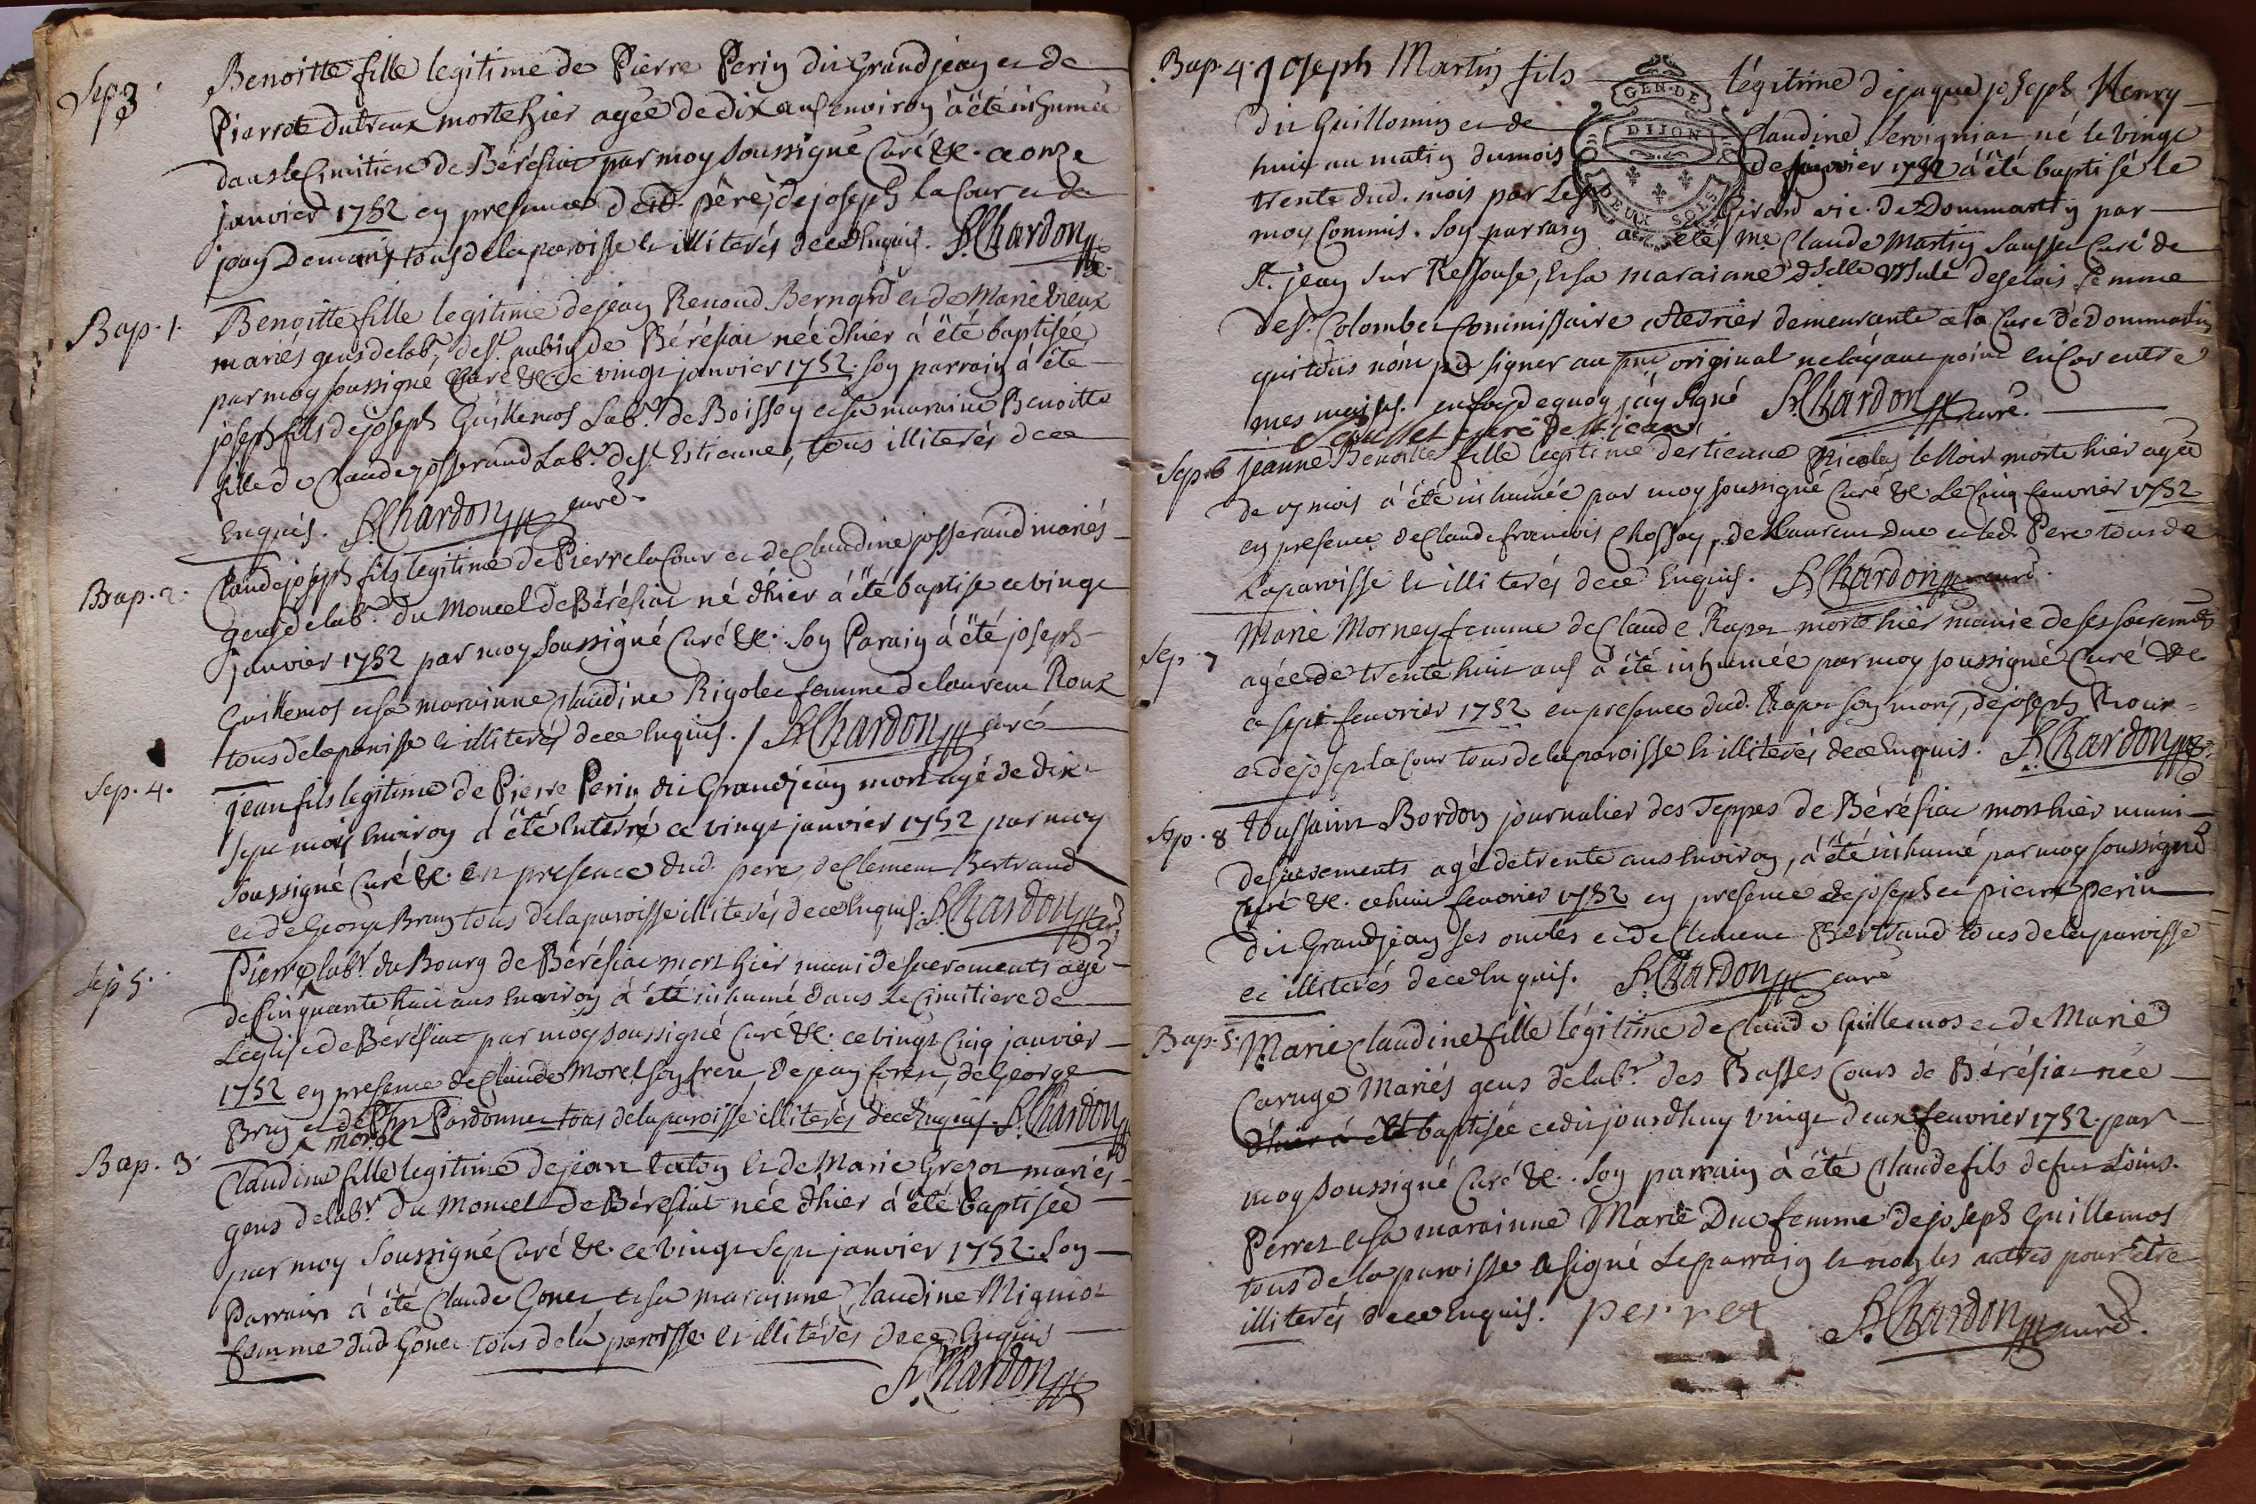 Sep. 3. Benoitte fille legitime de Pierre Perin dit Grandjean et de
Pierrete dutreux morte hier agée de dix ans environ à été inhumée
dans le Cimitiere de Bérésiat par moy soussigné Curé &c. ce onze
janvier 1752 en presence dud. père, de joseph la Cour et de
jean Demany tous de la paroisse et illiterés de ce Enquis. St. Chardon
Bap. 1. Benoitte fille legitime de jean Renoud Bernard et de Marie Vieux
mariés gens de labr. de St. aubin de Bérésiat née d'hier à été baptisée
par moy soussigné Curé &c ce vingt janvier 1752. son parrain à été
joseph fils de joseph Guillemos Labr. de Boissey et sa maraine Benoitte
fille de Claude josserand Labr. de St. Estienne, tous illiterés de ce
Enquis. St. Chardon curé
Bap. 2. Claude joseph fils legitime de Pierre la Cour et de Claudine josserand mariés
gens de labr. du Moncel de Bérésiat né d'hier à été baptisé ce vingt
janvier 1752 par moy soussigné Curé &c. Son Parain à été joseph
Guillemos et sa marainne Claudine Rigolet femme de laurent Roux
tous de la paroisse et illiterés de ce Enquis. / St. Chardon curé
Sep. 4. jean fils legitime de Pierre Perin dit Grandjean mort agé de dix
sept mois Environ à été Enterré ce vingt janvier 1752 par moy
soussigné Curé &c. en presence dud. pere, de Clement Bertrand
et de George Brun tous de la paroisse illiterés de ce Enquis. St. Chardon
Sep 5. Pierre labr. du Bourg de Bérésiat mort hier muni de sacrements agé
de Cinquante huit ans Environ à été inhumé dans le Cimitiere de
L'eglise de Bérésiat par moy soussigné Curé &c. ce vingt Cinq janvier
1752 en presence de Claude Morel son frere, de jean forest, de George
Brun et de Pardonnet tous de la paroisse illiterés de ce Enquis. St. Chardon
^ morel
Bap. 3. Claudine fille legitime de jean et de Marie Grezot mariés
gens de labr. du Moncel de Bérésiat née d'hier à été baptisée
par moy Soussigné Curé &c. ce vingt Sept janvier 1752. Son
Parrain à été Claude Gonet et sa marainne Claudine Migniot
femme dud. Gonet tous de la paroisse et illitérés de ce Enquis
St. Chardon
Bap. 4. Joseph Martin fils légitime de jaque joseph Henry
GEN. DE
DIJON
DEUX SOLS
dit Guillomin et de Claudine né le vingt
huit au matin du mois de janvier 1752 à été baptisé le
trente dud. mois par Girard vic. de Dommartin par
moy Commis. Son parrain a été me Claude Martin Curé de
St. jean sur Ressouse, et sa marainne dselle Ursule femme
de Sr. Colombet Commissaire demeurante a la Cure de Dommartin
qui tous n'ont pu signer au original ne l'ayant point encor entre
mes mains. en foy de quoy j'ay signé St. Chardon curé.
curé de St. jean
Sep. 6 jeanne Benoitte fille legitime d'estienne Nicolas le Noir morte hier agée
de mois à été inhumée par moy soussigné Curé &c Le Cinq fevrier 1752
en presence de Claude francois Chossay, de Laurent Duc et led. Pere tous de
la paroisse et illiterés de ce Enquis. St. Chardon curé.
Sep. 7 Marie Morney femme de Claude Rapet morte hier munie de ses sacremts
agée de trente huit ans à été inhumée par moy soussigné Curé &c
ce sept fevrier 1752 en presence dud. Rapet son mary, de joseph
et de joseph la Cour tous de la paroisse et illiterés de ce Enquis. St. Chardon
Sep. 8 toussaint Bordon journalier des Teppes de Bérésiat mort hier muni
de sacrements agé de trente ans Environ, à été inhumé par moy soussigné
Curé &c. ce huit fevrier 1752 en presence de joseph et pierre perin
dit Grandjean ses oncles et de Clement Bertrand tous de la paroisse
et illiterés de ce Enquis. St. Chardon curé
Bap. 5. Marie Claudine fille légitime de Claude Guillemos et de Marie
Caruge Mariés gens de labr. des Basses Cours de Bérésiat née
d'hier à été baptisée cedit jourd'huy vingt deux fevrier 1752. par
moy soussigné Curé &c. Son parrain à été Claude fils de fut Loüis
Perret et sa marainne Marie Duc femme de joseph Guillemos
tous de la paroisse a signé Le parrain et non les autres pour être
illiterés de ce Enquis. perret St. Chardon curé.